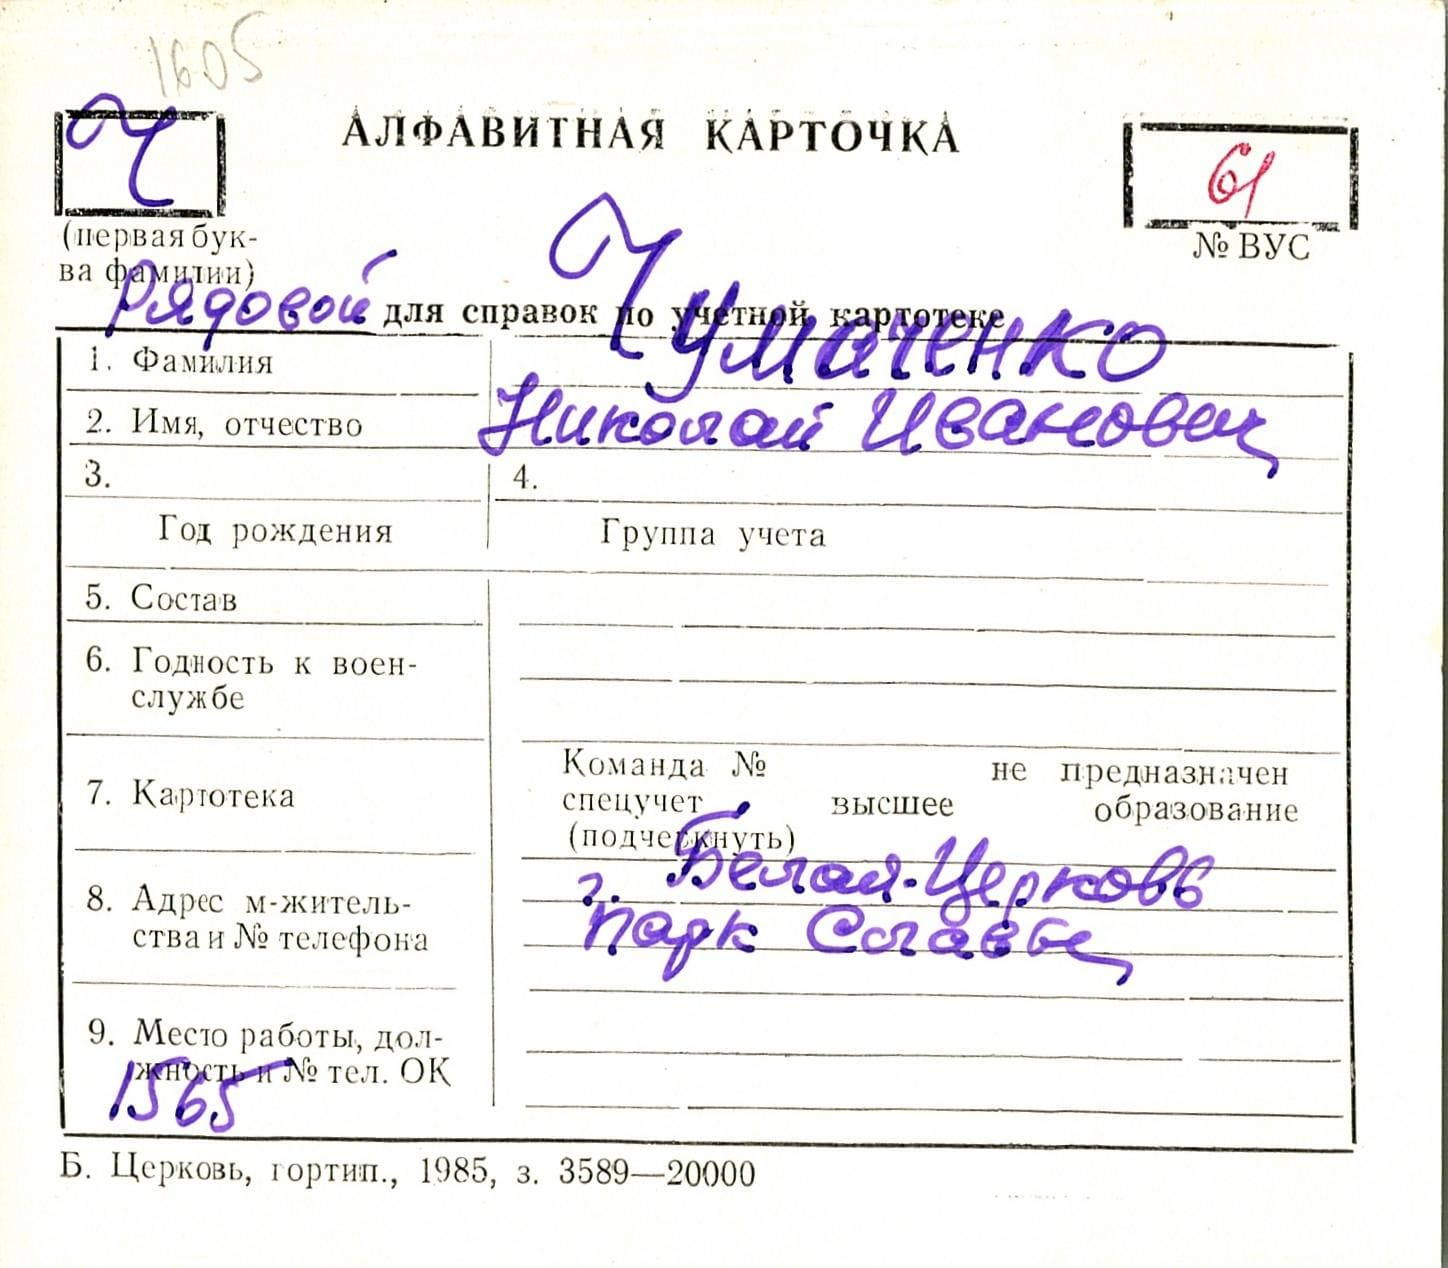 1605
Ч
АЛФАВИТНАЯ КАРТОЧКА
61
(первая бук-
ва фамилии)
№ ВУС
Рядовой для справок по учетной картотеке
1. Фамилия Чумаченко
2. Имя, отчество Николай Иванович
3. 4.
Год рождения Группа учета
5. Состав
6. Годность к воен-
службе
7. Картотека
Команда № не предназначен
спецучет высшее образование
(подчеркнуть)
8. Адрес м-житель-
ства и № телефона
г. Белая-Церковь
парк Славы
9. Место работы, дол-
жность и № тел. ОК
1565
Б. Церковь, гортип., 1985, з. 3589—20000